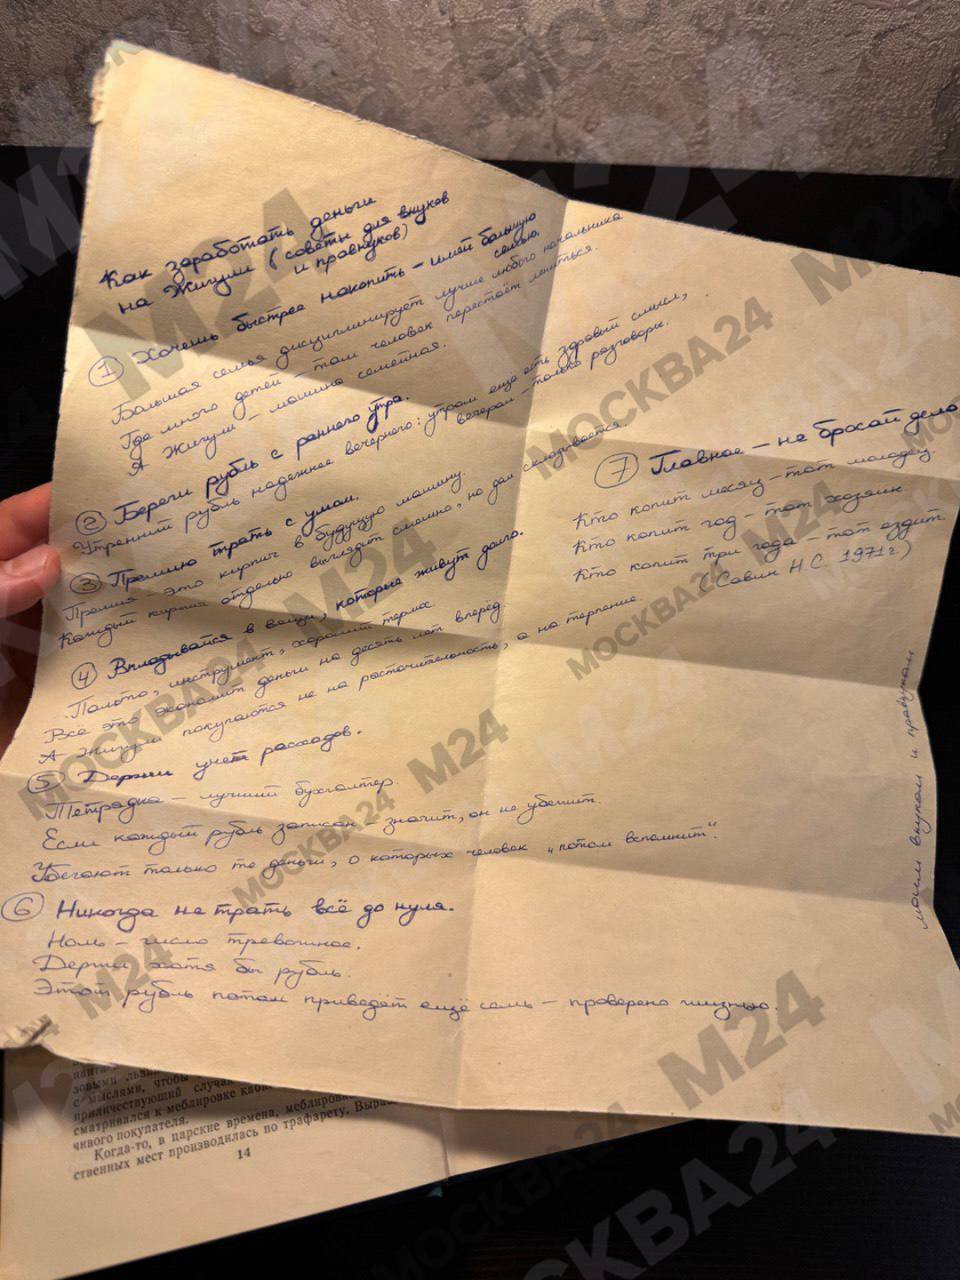 Как заработать деньги
на Жигули (советы для внуков
и правнуков)
① Хочешь быстрее накопить – имей большую
семью.
Большая семья дисциплинирует лучше любого начальника
Где много детей – там человек перестаёт лениться.
А Жигули – машина семейная.
② Береги рубль с раннего утра.
Утренний рубль надежнее вечернего: утром ещё есть здравый смысл,
вечером – только разговоры.
③ Премию трать с умом.
Премия – это кирпич в будущую машину.
Каждый кирпич отдельно выглядит смешно, но дом складывается.
④ Вкладывайся в вещи, которые живут долго.
Пальто, инструмент, хороший термос.
Всё это экономит деньги на десять лет вперёд.
А Жигули покупаются не на расточительность, а на терпение.
⑤ Держи учет расходов.
Тетрадка – лучший бухгалтер.
Если каждый рубль записан – значит, он не убежит.
Убегают только те деньги, о которых человек „потом вспомнит“.
⑥ Никогда не трать всё до нуля.
Ноль – число тревожное.
Держи хотя бы рубль.
Этот рубль потом приведёт ещё семь – проверено жизнью.
⑦ Главное – не бросай дело
Кто копит месяц – тот молодец.
Кто копит год – тот хозяин
Кто копит три года – тот ездит
(Савин Н С. 1971 г)
моим внукам и правнукам
зовыми
с мыслями, чтобы
приличествующий случаю
сматривался к меблировке
чивого покупателя.
Когда-то, в царские времена, меблировка
ственных мест производилась по трафарету.
14
МОСКВА24
М24